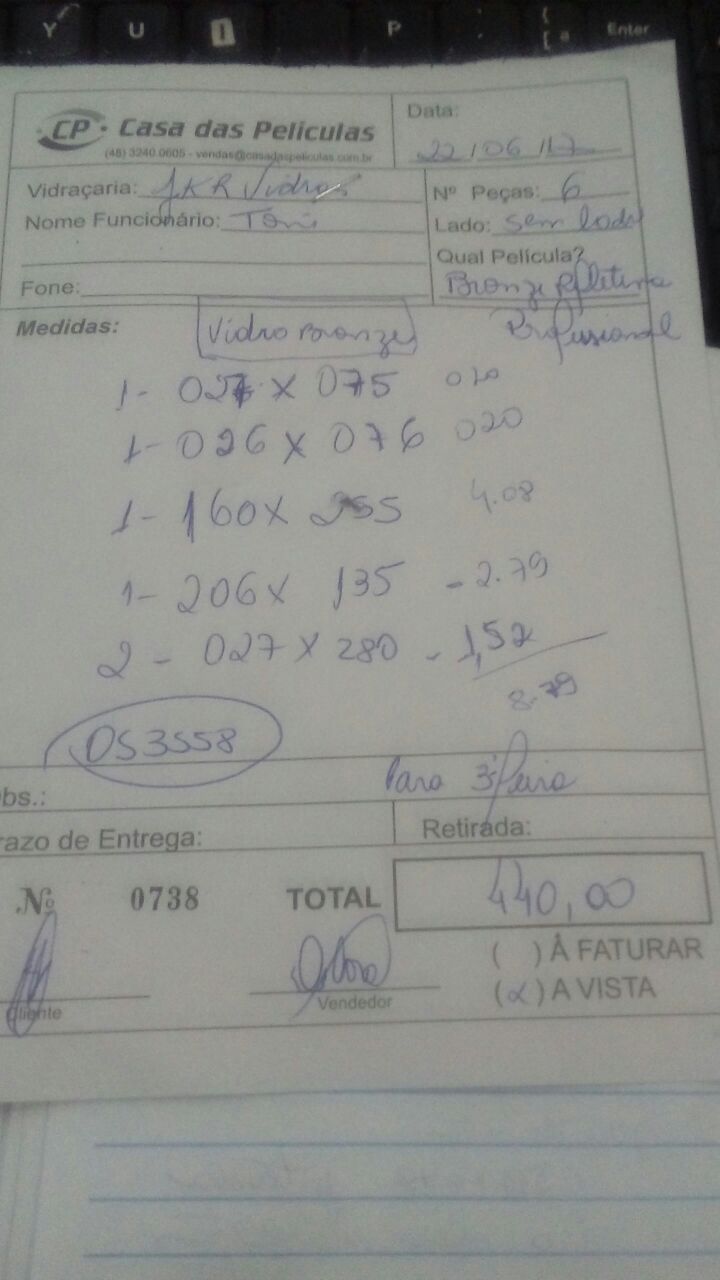 Y U I P { [ ª Enter
CP Casa das Peliculas
(48) 3240.0605 - vendas@casadaspeliculas.com.br
Data:
22/06/17
Vidraçaria: JKR Vidros
Nº Peças: 6
Nome Funcionário: Toni
Lado: Sem lado
Qual Película?
Fone:
Bronze Refletiva
Profissional
Medidas: Vidro Bronze
1- 027 x 075 020
1- 026 x 076 020
1- 160 x 255 4.08
1- 206 x 135 - 2.79
2 - 027 x 280 - 1,52
8.79
OS 3558
bs.: Para 3ª feira
razo de Entrega:
Retirada:
Nº 0738 TOTAL 440,00
( ) À FATURAR
(x) A VISTA
Cliente
Vendedor